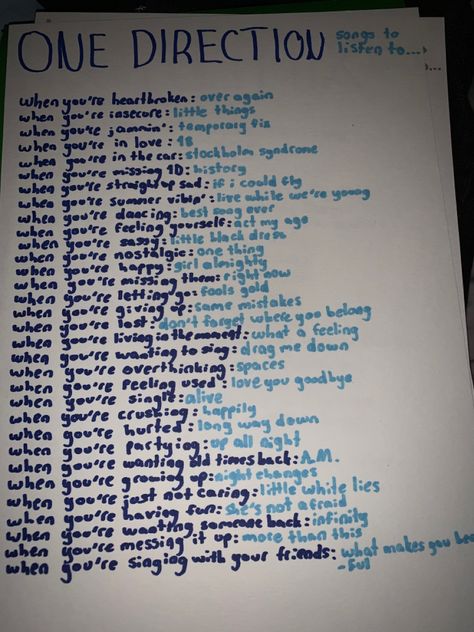 ONE DIRECTION songs to
listen to...
...
when you're heartbroken: over again
when you're insecure: little things
when you're jammin': temporary fix
when you're in love: 18
when you're in the car: stockholm syndrome
when you're missing 1D: history
when you're straight up sad: if i could fly
when you're summer vibin': live while we're young
when you're dancing: best song ever
when you're feeling yourself: act my age
when you're sassy: little black dress
when you're nostalgic: one thing
when you're happy: girl almighty
when you're missing them: right now
when you're letting go: fools gold
when you're giving up: same mistakes
when you're lost: don't forget where you belong
when you're living in the moment: what a feeling
when you're wanting to sing: drag me down
when you're overthinking: spaces
when you're feeling used: love you goodbye
when you're single: alive
when you're crushing: happily
when you're hurted: long way down
when you're partying: up all night
when you're wanting old times back: A.M.
when you're growing up: night changes
when you're just not caring: little white lies
when you're having fun: she's not afraid
when you're wanting someone back: infinity
when you're messing it up: more than this
when you're singing with your friends: what makes you